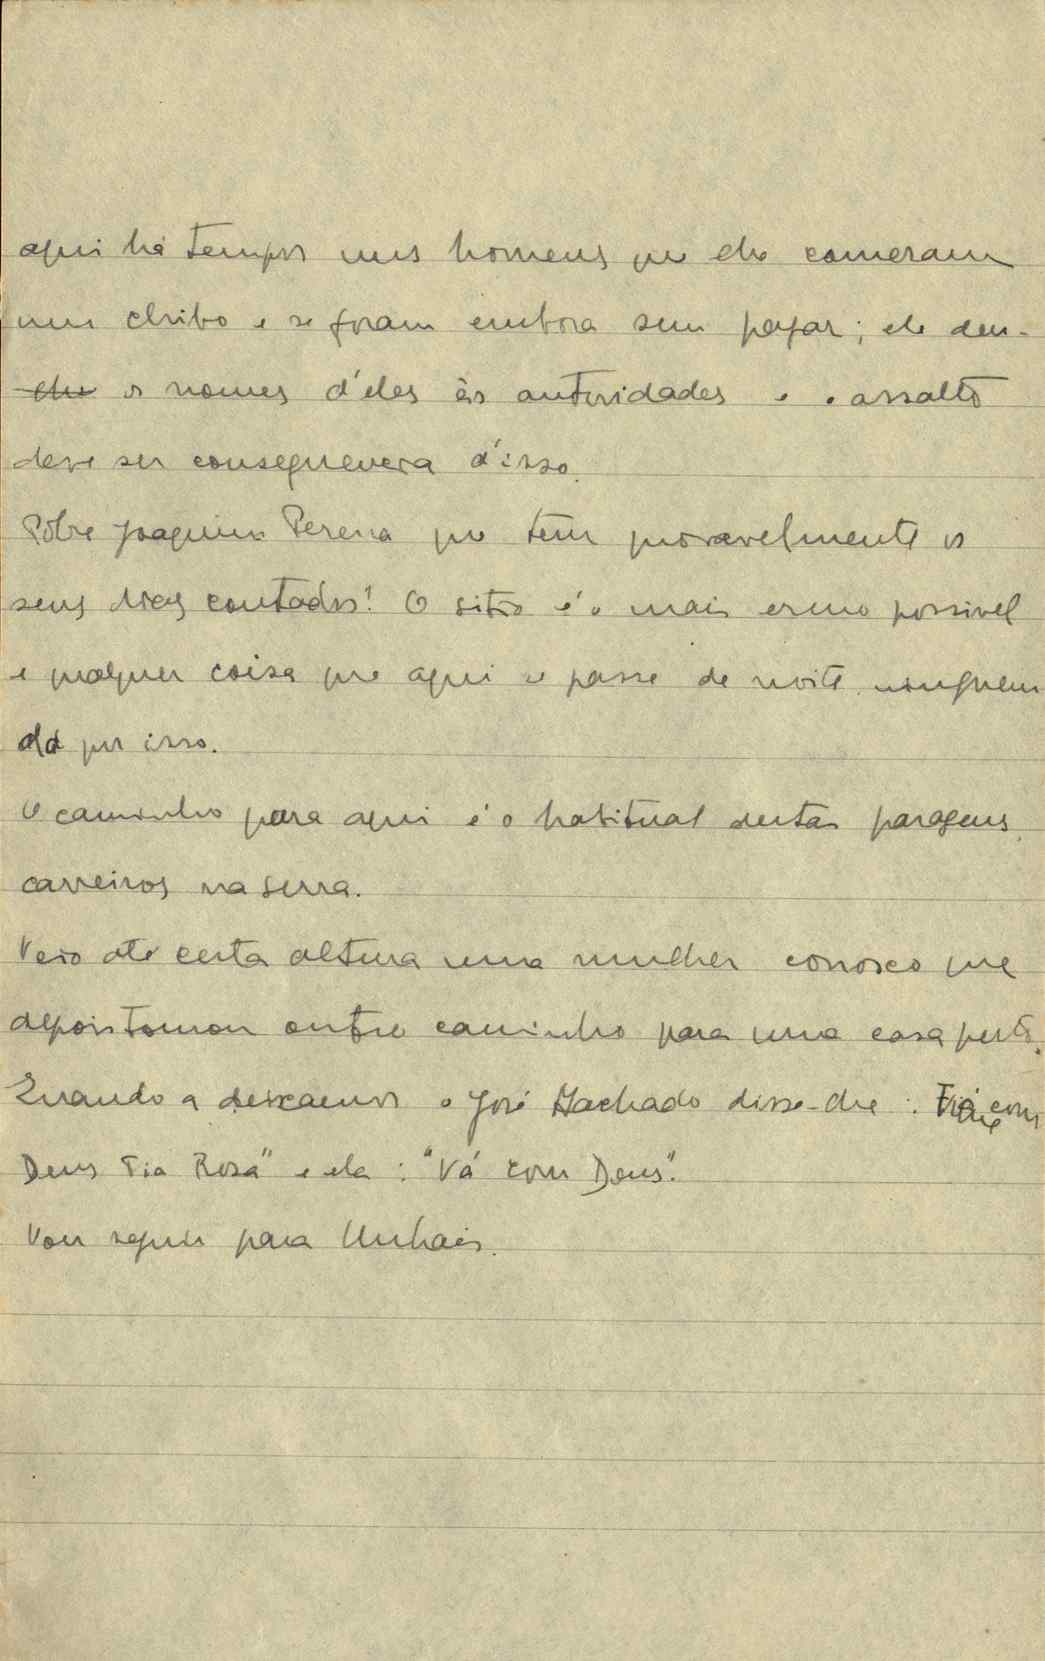 aqui há tempos uns homens que lhe comeram
um chibo e se foram embora sem pagar; ele deu-
~~lhe~~ os nomes d'eles às autoridades e o assalto
deve ser consequencia d'isso.
Pobre Joaquim Pereira que tem provavelmente os
seus dias contados! O sitio é o mais ermo possivel
e qualquer coisa que aqui se passe de noite ninguem
dá por isso.
O caminho para aqui é o habitual destas paragens,
carreiros na serra.
Veio até certa altura uma mulher conosco que
depois tomou outro caminho para uma casa perto.
Quando a deixamos o José Machado disse-lhe: Fique com
Deus Tia Rosa" e ela: "Vá com Deus".
Vou seguir para Unhais.